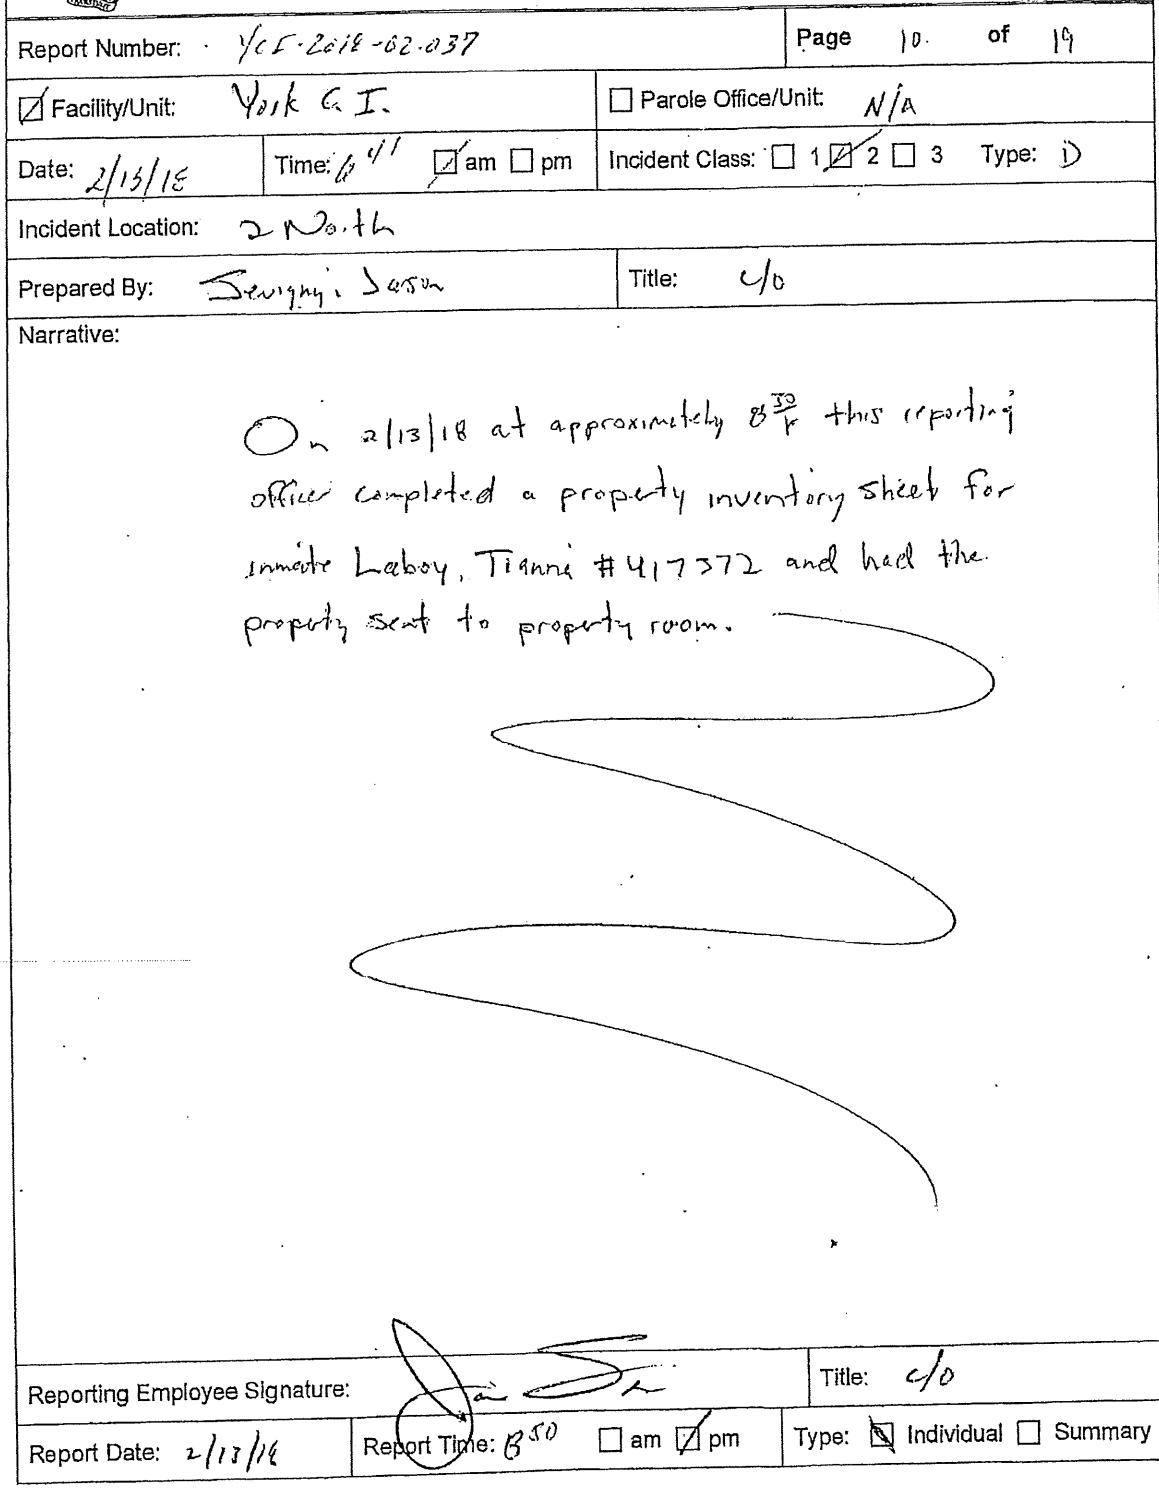 Report Number: YCI-2018-02-037 Page 10. of 19
Facility/Unit: York C.I. Parole Office/Unit: N/A
Date: 2/13/18 Time: 6 41 am pm Incident Class: 1 2 3 Type: D
Incident Location: 2 North
Prepared By: Sevigny, Jason Title: C/O
Narrative:
On 2/13/18 at approximately 8 30 this reporting
officer completed a property inventory sheet for
inmate Laboy, Tianna #417372 and had the
property sent to property room.
Reporting Employee Signature: Title: C/O
Report Date: 2/13/18 Report Time: 8 50 am pm Type: Individual Summary